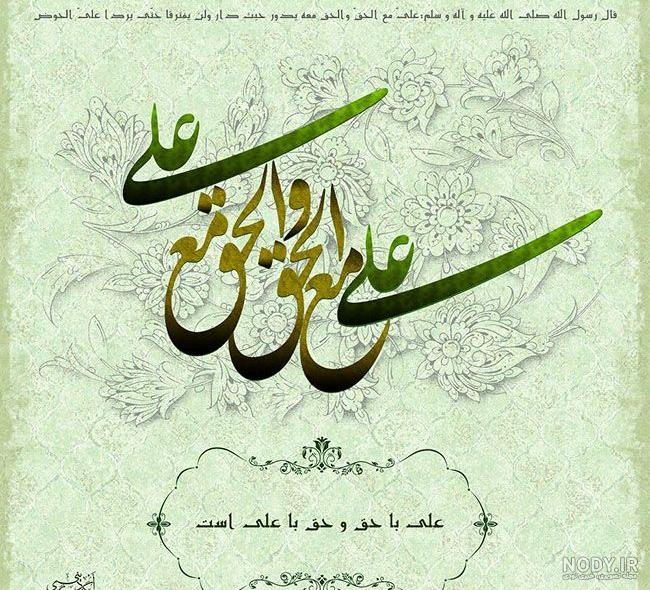 قال رسول الله صلى الله عليه و آله و سلم:عليّ مع الحقّ والحق معه يدور حيث دار ولن يفترقا حتّى يردا عليّ الحوض
علی مع الحق والحق مع علی
علی با حق و حق با علی است
NODY.IR